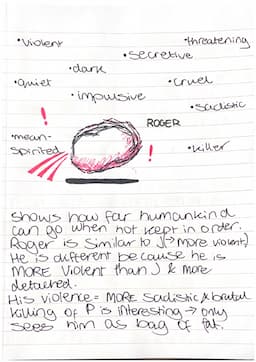 •Violent
•threatening
•secretive
•dark
•quiet
•cruel
•impulsive
•sadistic
ROGER
•mean-
spirited
•killer
! !
Shows how far humankind
can go when not kept in order.
Roger is similar to J(→more violent)
He is different because he is
MORE violent than J & more
detached.
His violence = MORE sadistic & brutal
killing of P is interesting → only
sees him as bag of fat.